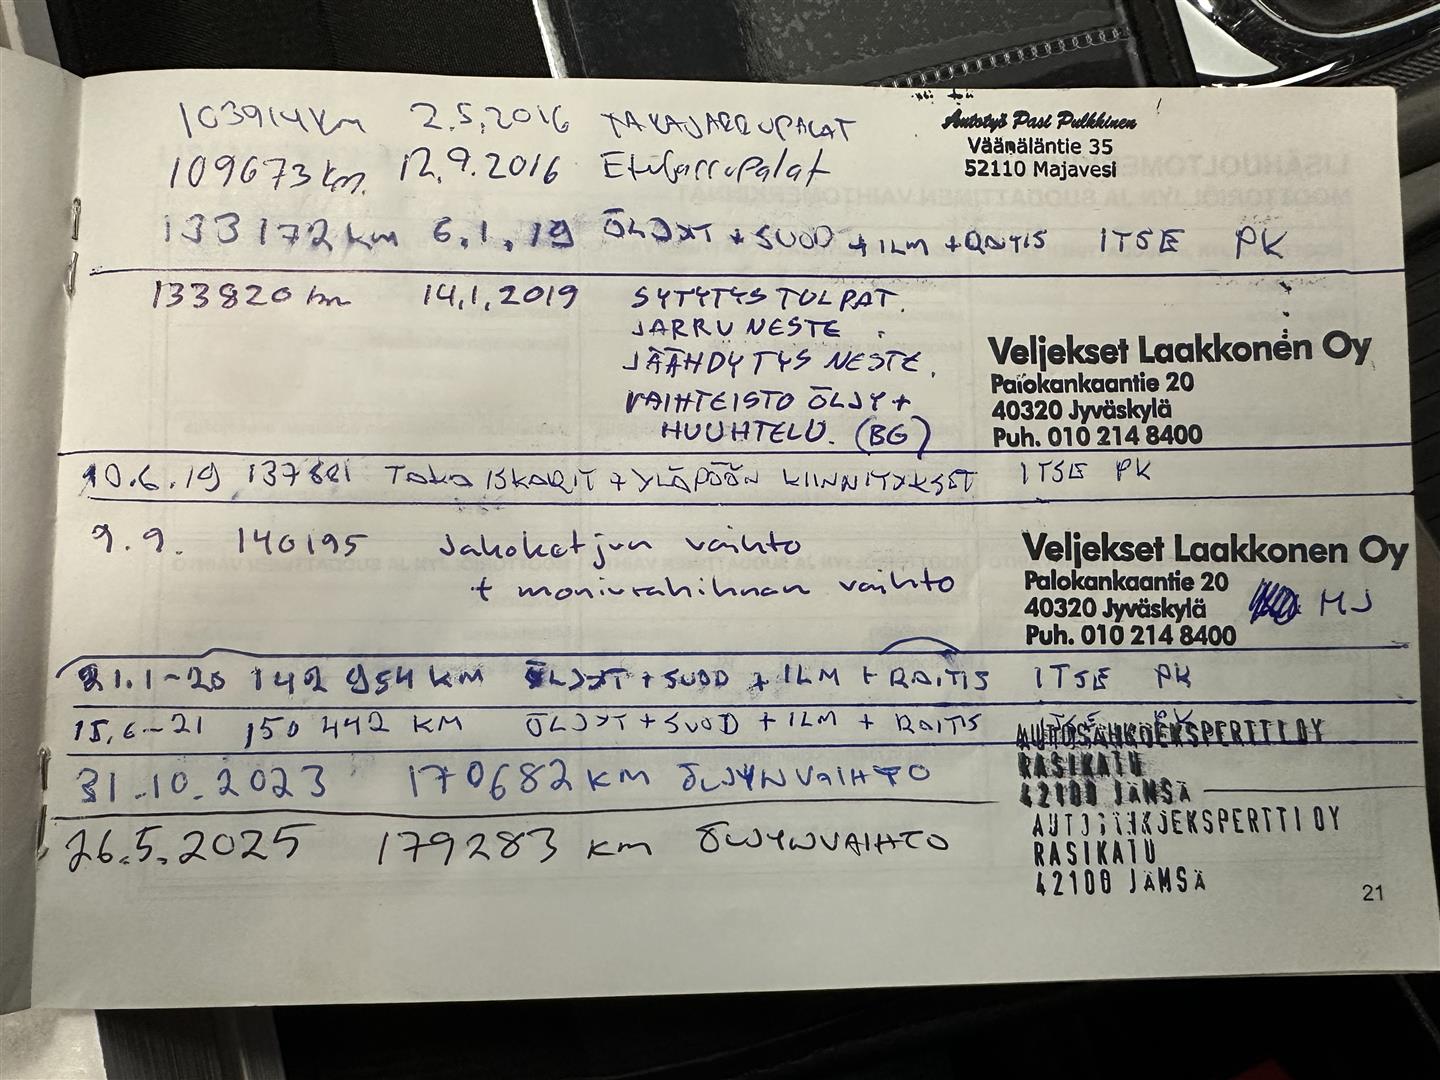 103914 km 2.5.2016 TAKAJARRUPALAT
Autotyö Pasi Pulkkinen
Väänäläntie 35
52110 Majavesi
109673 km. 12.9.2016 Etujarrupalat
133 172 km 6.1.19 ÖLJYT + SUOD + ILM + RAITIS ITSE PK
133820 km 14.1.2019 SYTYTYSTULPAT.
JARRUNESTE.
JÄÄHDYTYSNESTE.
VAIHTEISTO ÖLJY +
HUUHTELU. (BG)
Veljekset Laakkonen Oy
Palokankaantie 20
40320 Jyväskylä
Puh. 010 214 8400
10.6.19 TAKA ISKARIT + YLÄPÄÄN KIINNITYKSET ITSE PK
9.9. 140195 Jakoketjun vaihto
+ moniurahihnan vaihto
Veljekset Laakkonen Oy
Palokankaantie 20
40320 Jyväskylä MJ
Puh. 010 214 8400
21.1-20 142 954 KM ÖLJYT + SUOD + ILM + RAITIS ITSE PK
15.6-21 150 442 KM ÖLJYT + SUOD + ILM + RAITIS ITSE PK
AUTOSÄHKÖEKSPERTTI OY
RASIKATU
42100 JÄMSÄ
31.10.2023 170682 KM ÖLJYNVAIHTO
26.5.2025 179283 KM ÖLJYNVAIHTO
AUTOSÄHKÖEKSPERTTI OY
RASIKATU
42100 JÄMSÄ
21